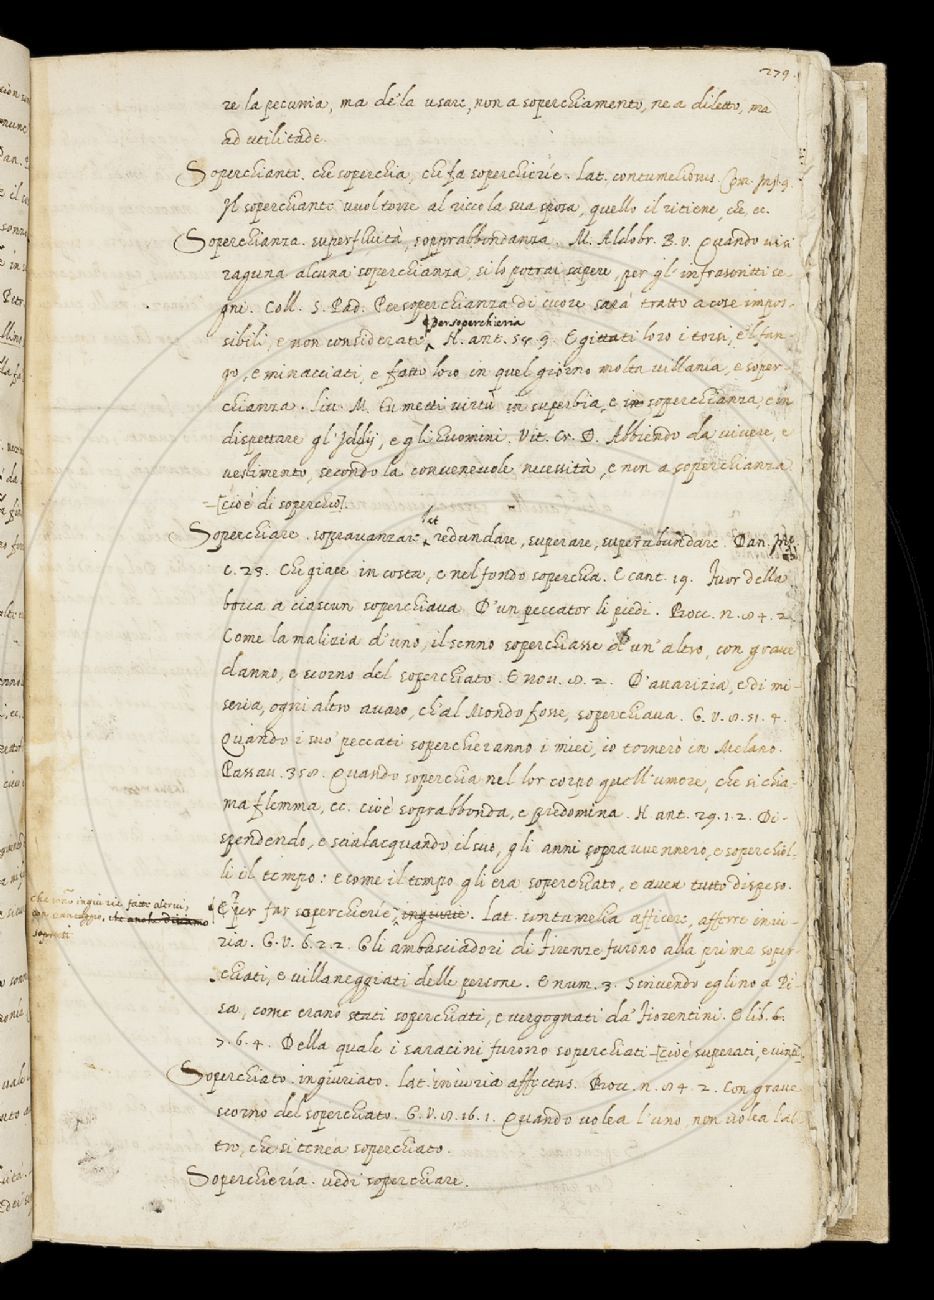 279.
re la pecunia, ma de la usare, non a soperchiamento, ne a diletto, ma
ad utilitade.
Soperchiante. che soperchia, che fa soperchierie. Lat. contumeliosus. Com. Inf. 9.
Il soperchiante vuol torre al ricco la sua sposa, quello il ritiene, che, ec.
Soperchianza. superfluità, soprabbondanza. M. Aldobr. B. v. Quando vi si
raguna alcuna soperchianza, si lo potrai sapere, per gl'infrascritti se
gni. Coll. S. Pad. Per soperchianza di cuore sarà tratto a cose impos-
per soperchieria
sibili, e non considerate. N. ant. 58. 9. E gittati loro i torsi, e 'l fan-
go, e minacciati, e fatto loro in quel giorno molta villania, e soper-
chianza. Liv. M. Tu metti virtù in superbia, e in soperchianza, e in
dispettare gl'Iddij, e gli huomini. Vit. Cr. D. Abbiendo da vivere, e
vestimento, secondo la convenevole necessità, e non a soperchianza
=[cioè di soperchio].
lat
Soperchiare. sopravanzare redundare, superare, superabundare. Dan. Inf.
c. 23. Che giace in costa, e nel fondo soperchia. E cant. 19. Fuor della
bocca a ciascun soperchiava D'un peccator li piedi. Bocc. n. 84. 2.
Come la malizia d'uno, il senno soperchiasse d'un'altro, con grave
danno, e scorno del soperchiato. E nov. 8. 2. D'avarizia, e di mi-
seria, ogni altro avaro, ch'al Mondo fosse, soperchiava. G. V. 8. 51. 4.
Quando i suo' peccati soperchieranno i miei, io tornerò in Melano.
Passav. 358. Quando soperchia nel lor corpo quell'umore, che si chia-
ma flemma, ec. cioè soprabbonda, e predomina. N. ant. 29. 1. 2. Di-
spendendo, e scialacquando il suo, gli anni sopravvennero, e soperchiol-
li il tempo: e come il tempo gli era soperchiato, e avea tutto dispeso.
che sono ingiurie fatte altrui,
con vantaggio, che anche diciamo
soprusi
¶ E per far soperchierie, ingiurie. Lat. contumelia afficere, afferre iniu-
ria. G. V. 6. 2. 2. Gli ambasciadori di Firenze furono alla prima soper-
chiati, e villaneggiati delle persone. E num. 3. Scrivendo eglino a Pi-
sa, come erano stati soperchiati, e vergognati da' Fiorentini. E lib. 6.
7. 6. 4. Della quale i saracini furono soperchiati =[cioè superati, e vinti].
Soperchiato. ingiuriato. Lat. iniuria affectus. Bocc. n. 84. 2. Con grave
scorno del soperchiato. G. V. 8. 16. 1. Quando volea l'uno, non volea l'al-
tro, che si tenea soperchiato.
Soperchieria. vedi soperchiare.